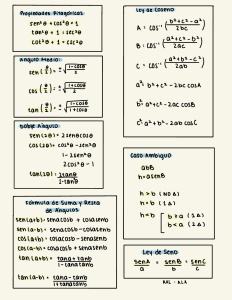 Propiedades Pitagóricas
sen²θ + cos²θ = 1
tan²θ + 1 = sec²θ
cot²θ + 1 = csc²θ
Angulo Medio:
sen(θ/2) = ±√(1-cosθ/2)
cos(θ/2) = ±√(1+cosθ/2)
tan(θ/2) = ±√(1-cosθ/1+cosθ)
Doble Angulo
sen(2θ) = 2senθcosθ
cos(2θ) = cos²θ - sen²θ
1 - 2sen²θ
2cos²θ - 1
tan(2θ) = 2tanθ/1-tan²θ
Fórmula de Suma y Resta
de Angulos
sen(a+b) = senacosb + cosasenb
sen(a-b) = senacosb - cosasenb
cos(a+b) = cosacosb - senasenb
cos(a-b) = cosacosb + senasenb
tan(a+b) = tana + tanb/1-tanatanb
tan(a-b) = tana - tanb/1+tanatanb
Ley de Coseno
A = cos⁻¹(b²+c²-a²/2bc)
B = cos⁻¹(a²+c²-b²/2ac)
C = cos⁻¹(a²+b²-c²/2ab)
a² = b²+c²-2bc cosA
b² = a²+c²-2ac cosB
c² = a²+b²-2ab cosC
Caso Ambiguo
abB
h = asenB
h > b (NO Δ)
h = b (1 Δ)
h < b { b ≥ a (1 Δ)
b < a (2 Δ)
Ley de Seno
senA/a = senB/b = senC/c
AAL - ALA